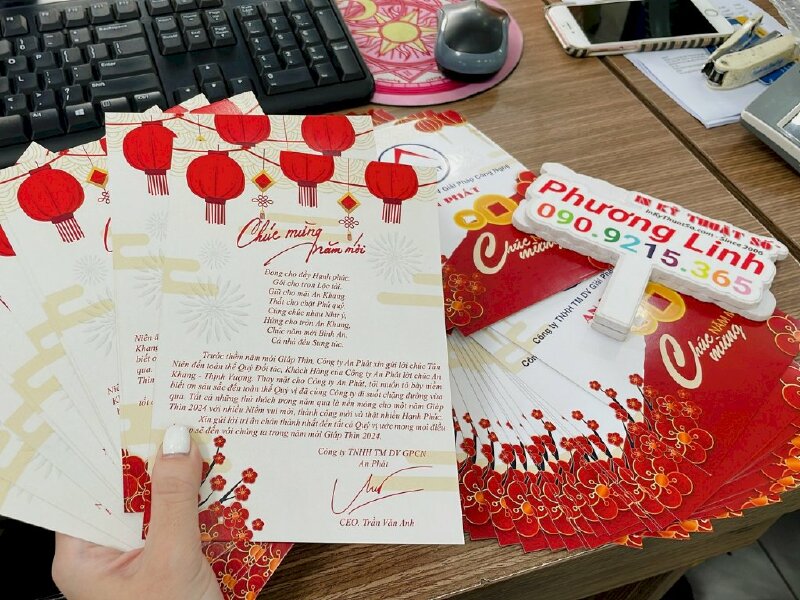 Chúc mừng
năm mới
Đong cho đầy Hạnh phúc.
Gói cho trọn Lộc tài.
Giữ cho mãi An Khang.
Thắt cho chặt Phú quý.
Cùng chúc nhau Như ý,
Hứng cho tròn An Khang,
Chúc năm mới Bình An.
Cả nhà đều Sung túc.
Trước thềm năm mới Giáp Thìn, Công ty An Phát xin gửi lời chúc Tân
Niên đến toàn thể Quý Đối tác, Khách Hàng của Công ty An Phát lời chúc An
Khang - Thịnh Vượng. Thay mặt cho Công ty An Phát, tôi muốn tỏ bày niềm
biết ơn sâu sắc đến toàn thể Quý vị đã cùng Công ty đi suốt chặng đường vừa
qua. Tất cả những thử thách trong năm qua là nền móng cho một năm Giáp
Thìn 2024 với nhiều Niềm vui mới, thành công mới và thật nhiều Hạnh Phúc.
Xin gửi lời tri ân chân thành nhất đến tất cả Quý vị ước mong mọi điều
sẽ đến với chúng ta trong năm mới Giáp Thìn 2024.
Công ty TNHH TM DV GPCN
An Phát
CEO. Trần Vân Anh
Giải Pháp Công Nghệ
PHÁT
Chúc
mừng
IN KỸ THUẬT SỐ
InKyThuatSo.com - Since 2006
Phương Linh
090.9215.365
Công ty TNHH TM DV Giải
AN
Chúc NĂM
mừng